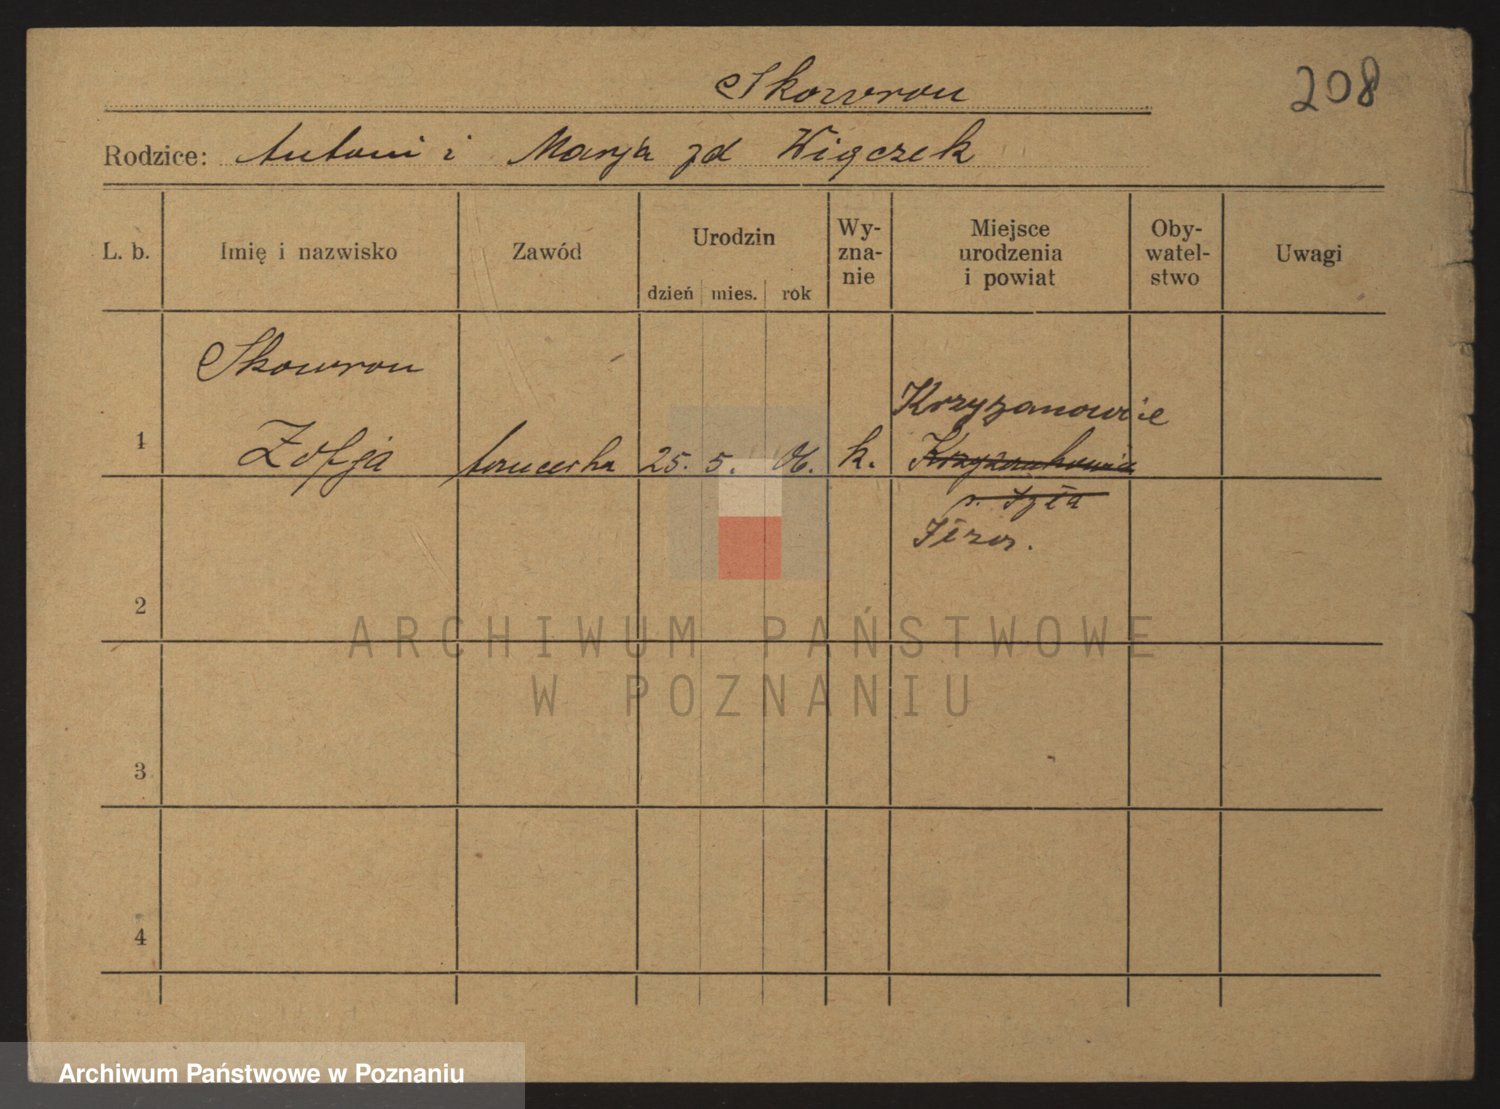 Skowron
208
Rodzice: Antoni i Marja zd Więczek
L. b.
Imię i nazwisko
Zawód
Urodzin
dzień mies. rok
Wy-
zna-
nie
Miejsce
urodzenia
i powiat
Oby-
watel-
stwo
Uwagi
Skowron
Krzyżanowie
1 Zofja 25. 5. 06. k.
2
3
4
ARCHIWUM PAŃSTWOWE
W POZNANIU
Archiwum Państwowe w Poznaniu